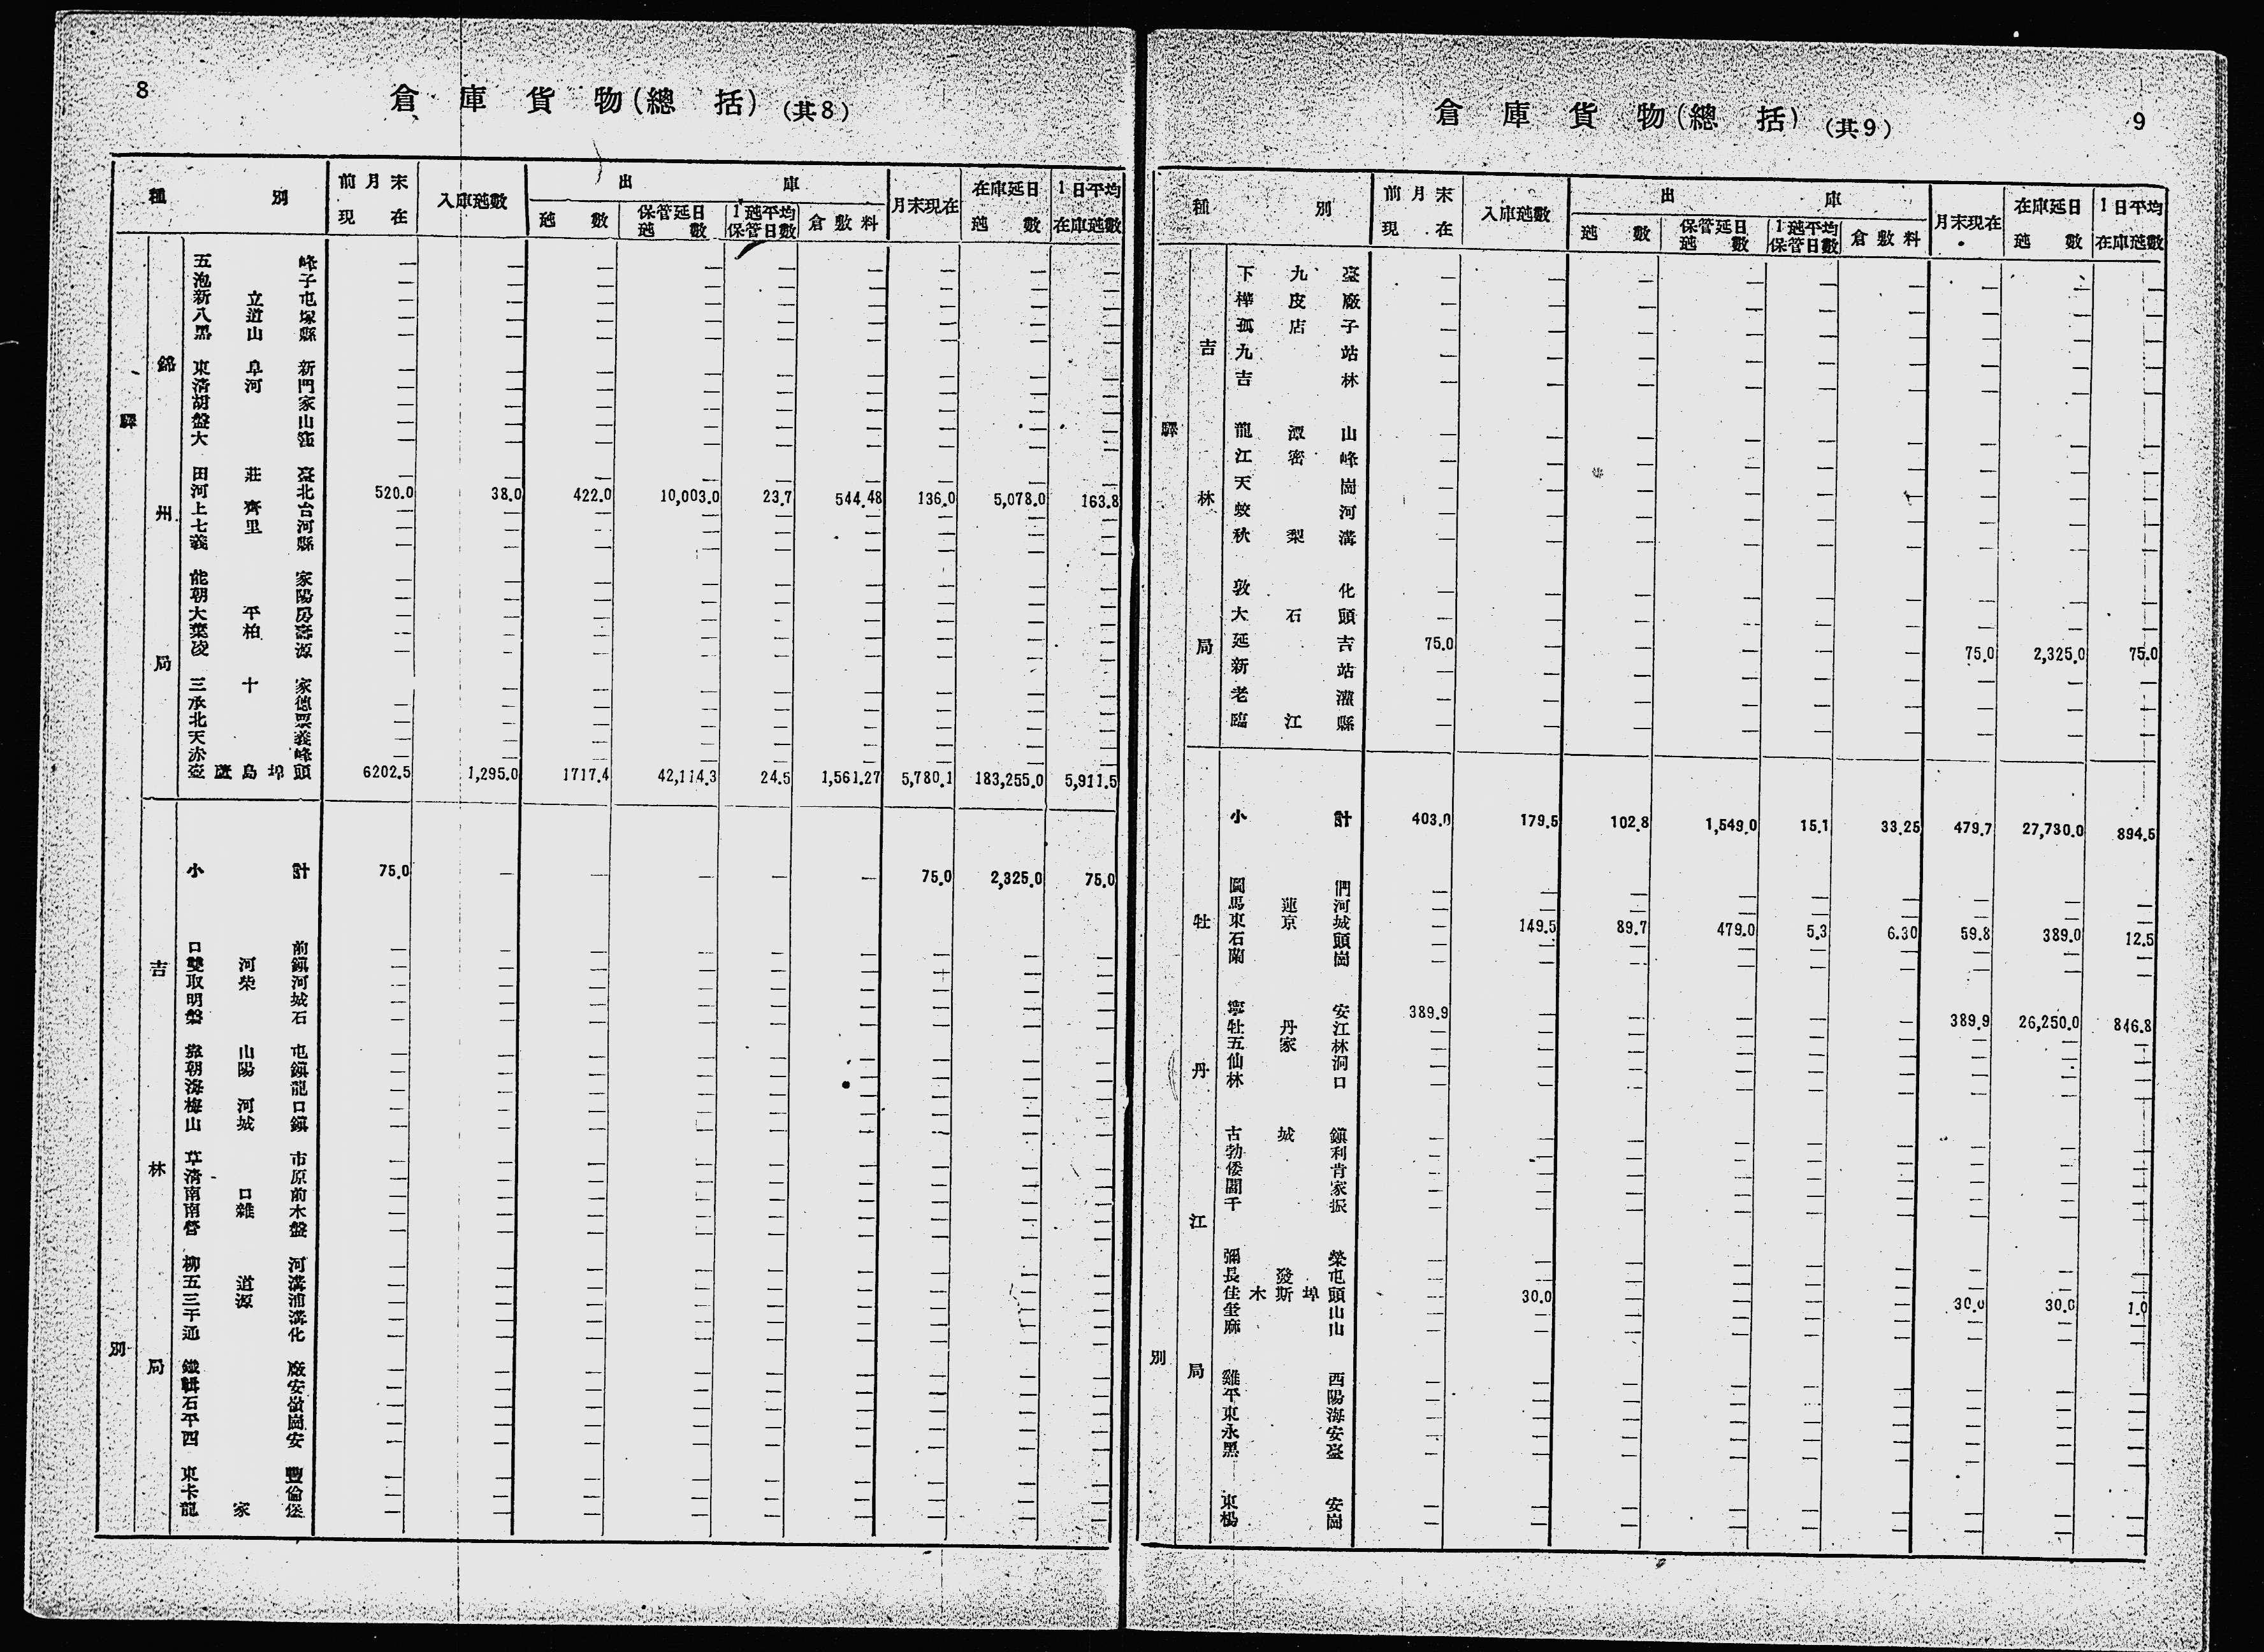 8
倉庫貨物(總括)(共8)
種別 前月末現在 入庫瓲數 出庫 月末現在 在庫延日瓲數 1日平均在庫瓲數
瓲數 保管延日瓲數 1瓲平均保管日數 倉敷料
驛別
錦州局
五峰 — — — — — — — — —
泡子 — — — — — — — — —
新立屯 — — — — — — — — —
八道壕 — — — — — — — — —
黑山縣 — — — — — — — — —
東阜新 — — — — — — — — —
清河門 — — — — — — — — —
胡家 — — — — — — — — —
盤山 — — — — — — — — —
大窪 — — — — — — — — —
田莊臺 — — — — — — — — —
河北 520.0 38.0 422.0 10,003.0 23.7 544.48 136.0 5,078.0 163.8
上齊台 — — — — — — — — —
七里河 — — — — — — — — —
義縣 — — — — — — — — —
能家 — — — — — — — — —
朝陽 — — — — — — — — —
大平房 — — — — — — — — —
葉柏壽 — — — — — — — — —
凌源 — — — — — — — — —
三十家 — — — — — — — —
承德 — — — — — — — — —
北票 — — — — — — — — —
天義 — — — — — — — — —
赤峰 — — — — — — — — —
壺蘆島埠頭 6202.5 1,295.0 1717.4 42,114.3 24.5 1,561.27 5,780.1 183,255.0 5,911.5
吉林局
小計 75.0 — — — — — 75.0 2,325.0 75.0
口前 — — — — — — — — —
雙河鎭 — — — — — — — — —
取柴河 — — — — — — — — —
明城 — — — — — — — — —
磐石 — — — — — — — — —
山屯 — — — — — — — — —
朝陽鎭 — — — — — — — — —
海龍 — — — — — — — — —
梅河口 — — — — — — — — —
山城鎭 — — — — — — — — —
草市 — — — — — — — — —
清原 — — — — — — — — —
南口前 — — — — — — — — —
南雜木 — — — — — — — — —
營盤 — — — — — — — — —
柳河 — — — — — — — — —
五道溝 — — — — — — — — —
三源浦 — — — — — — — — —
干溝 — — — — — — — — —
通化 — — — — — — — — —
鐵廠 — — — — — — — — —
輯安 — — — — — — — — —
石嶺 — — — — — — — — —
平崗 — — — — — — — — —
西安 — — — — — — — — —
東豐 — — — — — — — — —
卡倫 — — — — — — — — —
龍家堡 — — — — — — — — —
9
倉庫貨物(總括)(共9)
種別 前月末現在 入庫瓲數 出庫 月末現在 在庫延日瓲數 1日平均在庫瓲數
瓲數 保管延日瓲數 1瓲平均保管日數 倉敷料
驛別
吉林局
下九臺 — — — — — — — — —
樺皮廠 — — — — — — — — —
孤店子 — — — — — — — — —
九站 — — — — — — — — —
吉林 — — — — — — — — —
龍潭山 — — — — — — — — —
江密峰 — — — — — — — — —
天崗 — — — — — — — — —
蛟河 — — — — — — — — —
秋梨溝 — — — — — — — — —
敦化 — — — — — — — — —
大石頭 — — — — — — — — —
延吉 75.0 — — — — — 75.0 2,325.0 75.0
新站 — — — — — — — — —
老瀼 — — — — — — — — —
臨江縣 — — — — — — — — —
牡丹江局
小計 403.0 179.5 102.8 1,549.0 15.1 33.25 479.7 27,730.0 894.5
圖們 — — — — — — — — —
馬蓮河 — — — — — — — — —
東京城 — 149.5 89.7 479.0 5.3 6.30 59.8 389.0 12.5
石頭 — — — — — — — — —
蘭崗 — — — — — — — — —
寧安 389.9 — — — — — 389.9 26,250.0 846.8
牡丹江 — — — — — — — — —
五家林 — — — — — — — — —
仙洞 — — — — — — — — —
林口 — — — — — — — — —
古城鎭 — — — — — — — — —
勃利 — — — — — — — — —
倭肯 — — — — — — — — —
閻家 — — — — — — — — —
千振 — — — — — — — — —
彌榮 — — — — — — — — —
長發屯 — — — — — — — — —
佳木斯埠頭 — 30.0 — — — — 30.0 30.0 1.0
山 — — — — — — — — —
麻山 — — — — — — — — —
雞西 — — — — — — — — —
平陽 — — — — — — — — —
東海 — — — — — — — — —
永安 — — — — — — — — —
黑臺 — — — — — — — — —
東安 — — — — — — — — —
楊崗 — — — — — — — — —